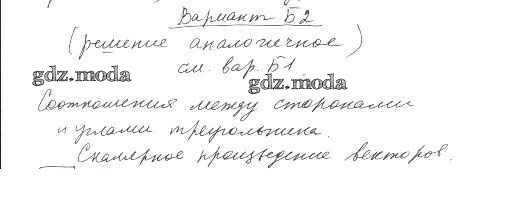 Вариант Б2
(решение аналогичное)
см. вар. Б1
gdz.moda
gdz.moda
Соотношения между сторонами
и углами треугольника.
Скалярное произведение векторов.